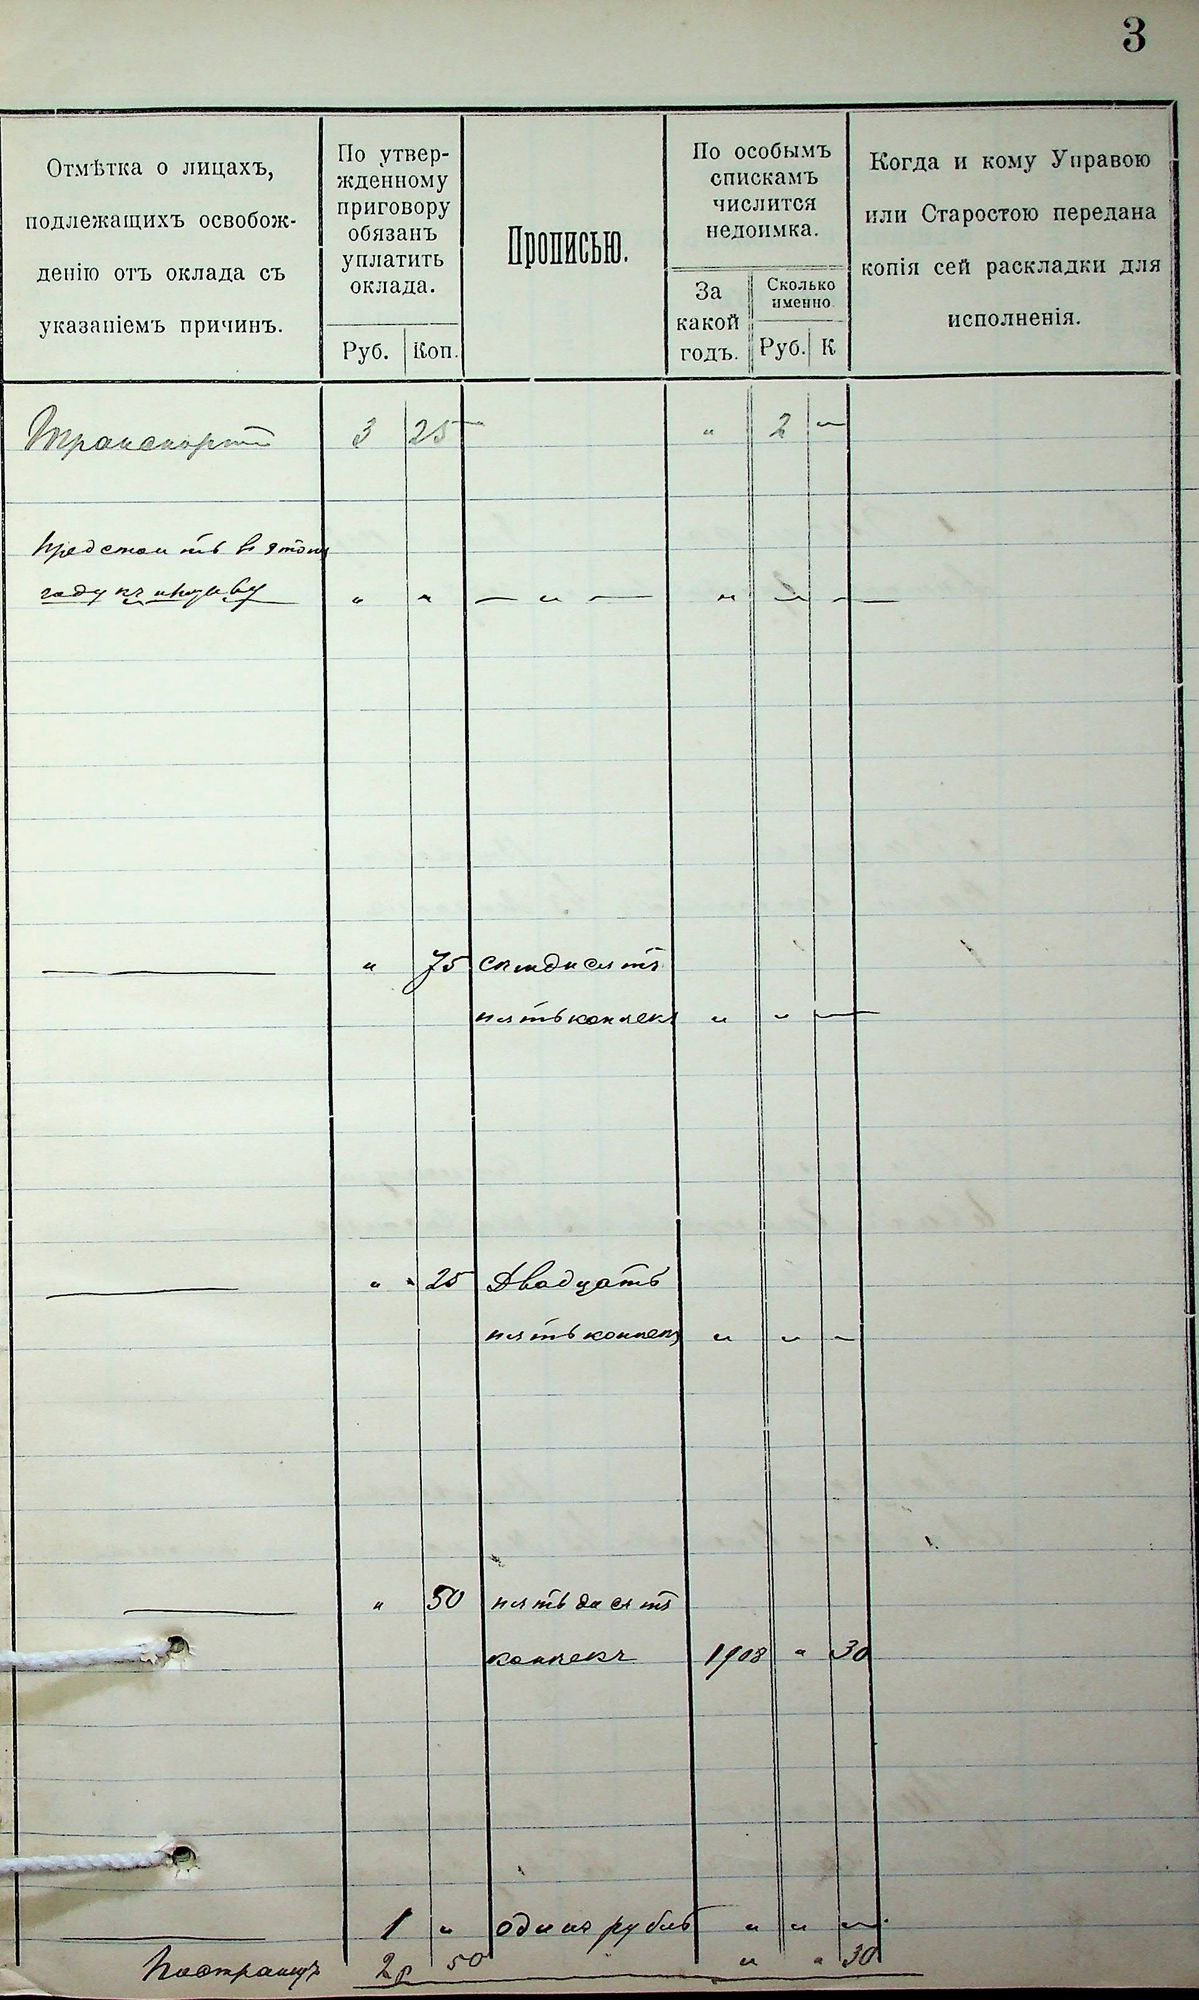 3
Отмѣтка о лицахъ,
подлежащихъ освобож-
денію отъ оклада съ
указаніемъ причинъ.
По утвер-
жденному
приговору
обязанъ
уплатить
оклада.
Руб.
Коп.
Прописью.
По особымъ
спискамъ
числится
недоимка.
За
какой
годъ.
Сколько
именно
Руб.
К
Когда и кому Управою
или Старостою передана
копія сей раскладки для
исполненія.
Транспортъ 3 25 — „ 2 —
Предстоитъ въ этомъ
году къ призыву „ „ — „ — „ — —
— „ 75 семьдесятъ
пять копѣекъ „ „ —
— „ 25 Двадцать
пять копѣекъ „ „ —
— „ 50 пятьдесятъ
копѣекъ 1908 „ 30
— 1 „ одинъ рубль „ „ —
Постраницъ 2р 50 „ „ 30